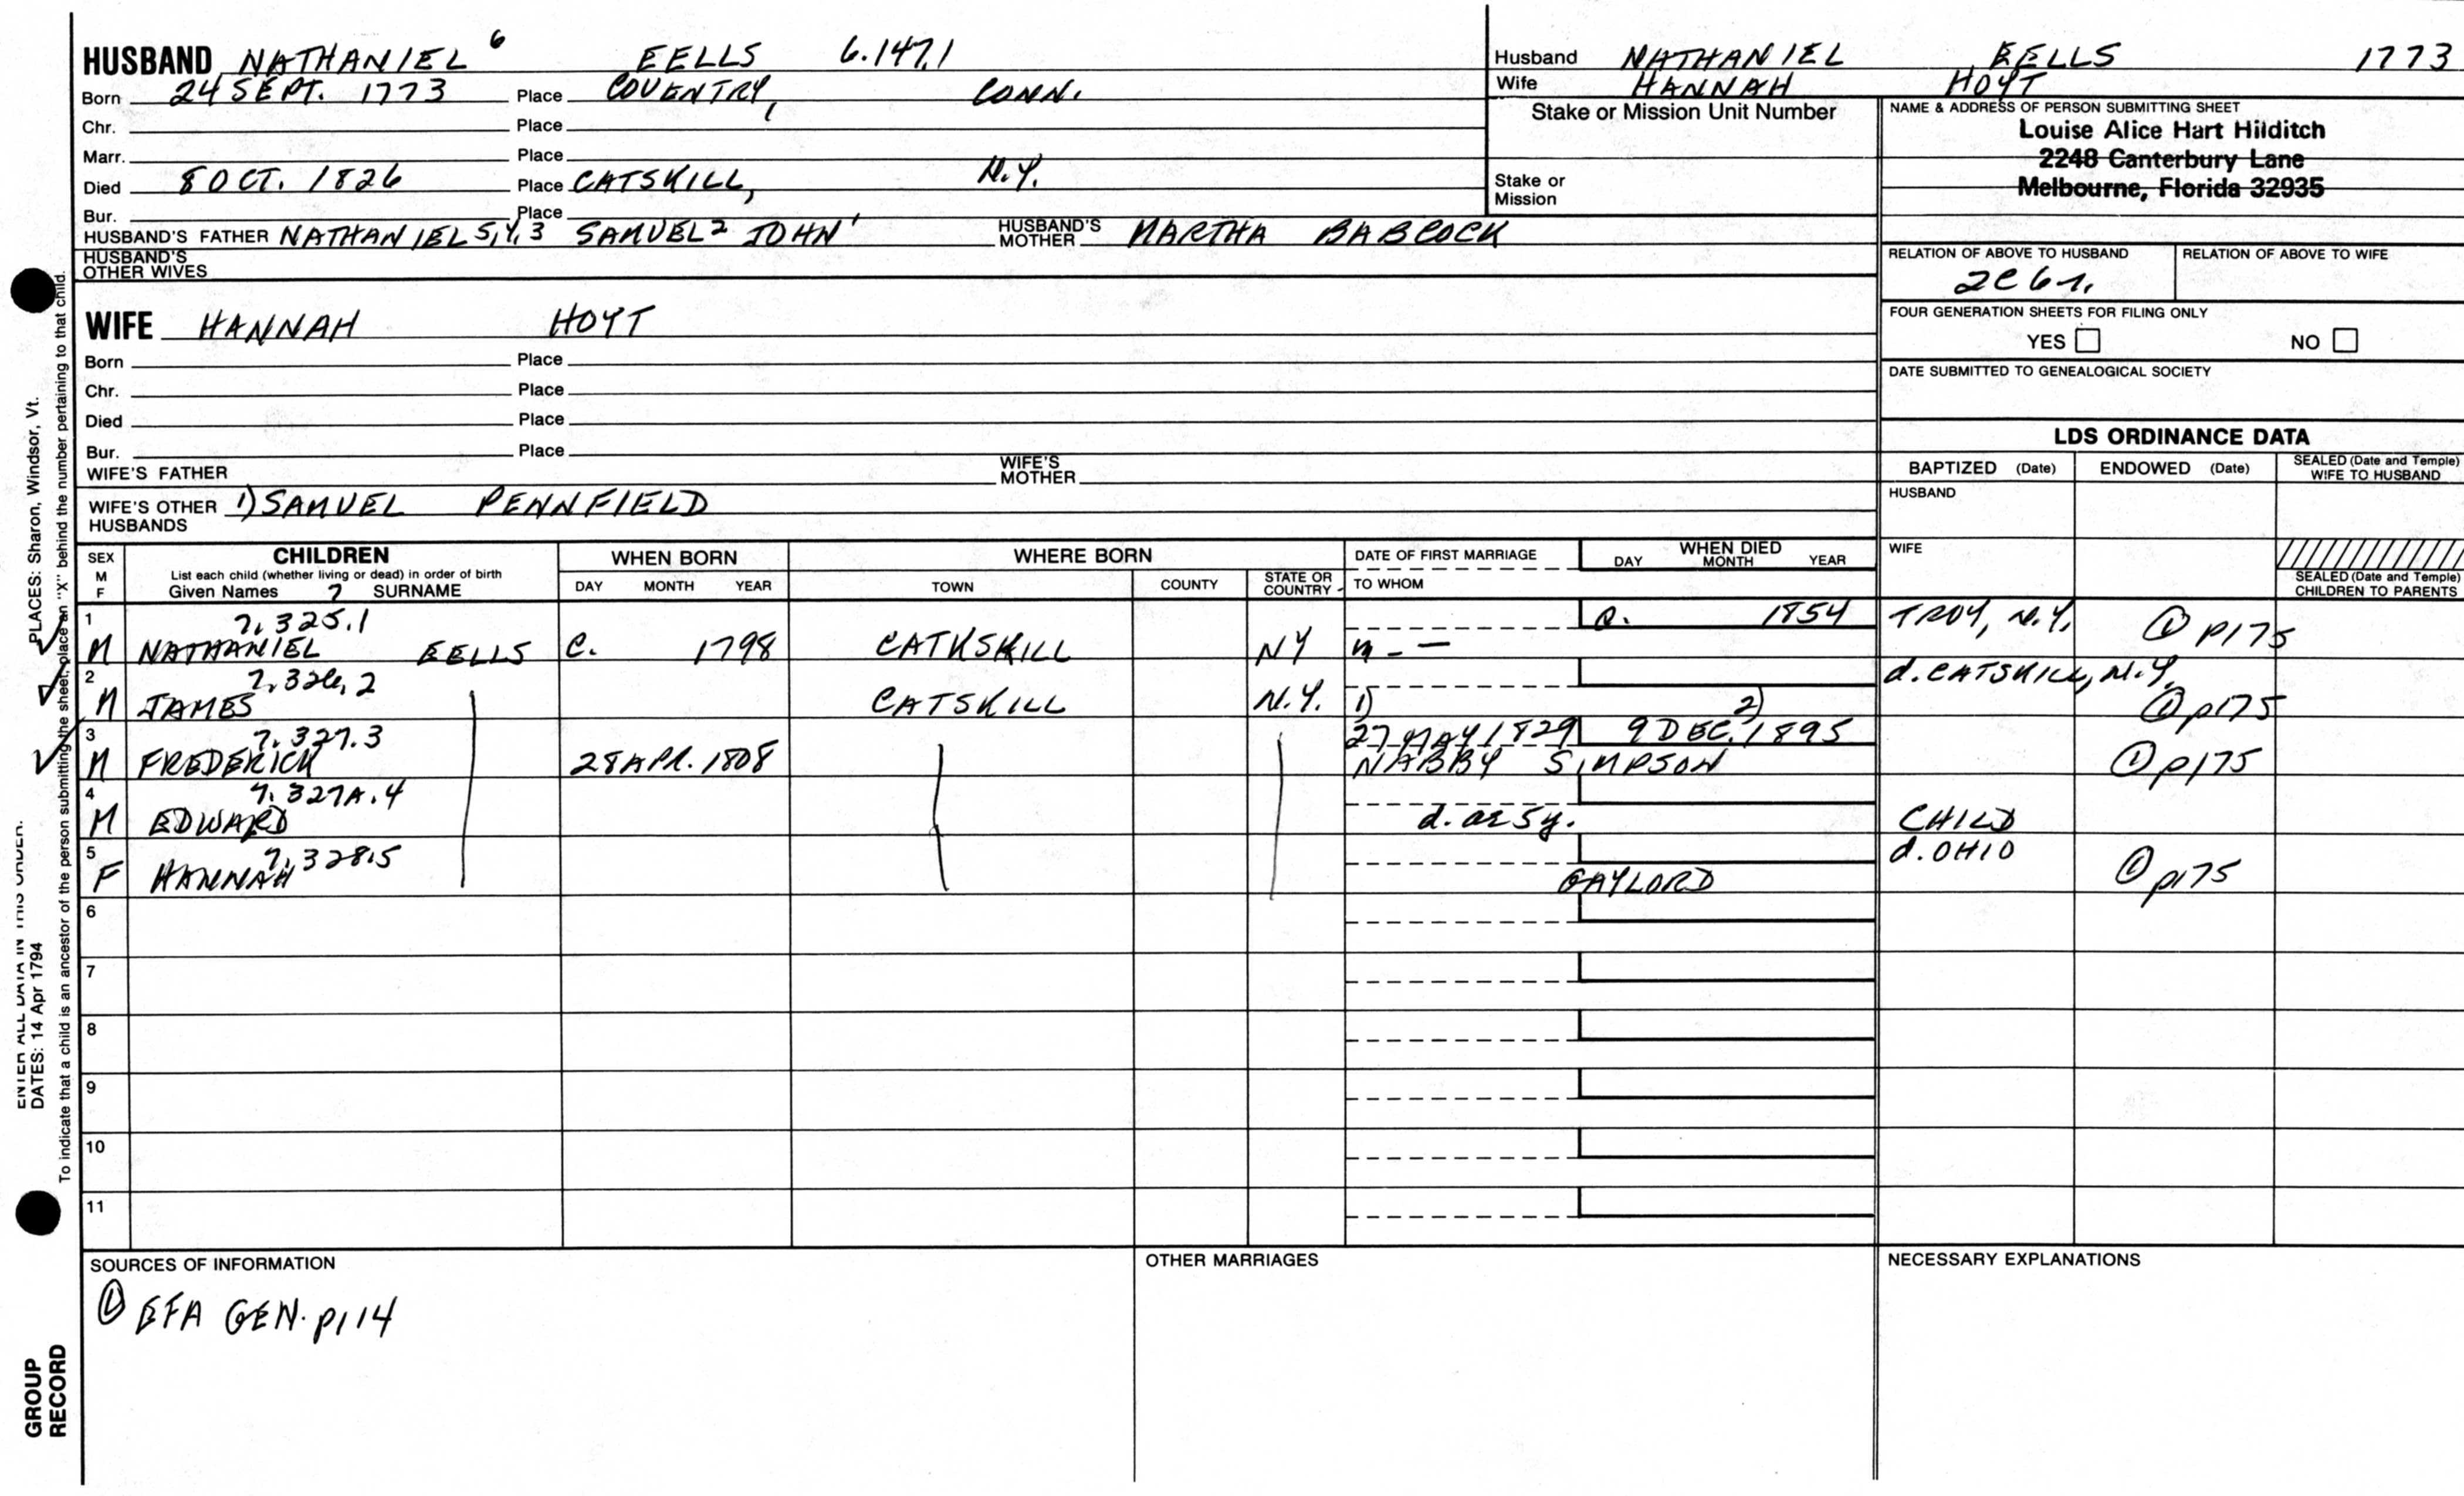 HUSBAND NATHANIEL 6 EELLS 6.147.1
Born 24 SEPT. 1773 Place COVENTRY, CONN.
Chr. Place
Marr. Place
Died 8 OCT. 1826 Place CATSKILL, N.Y.
Bur. Place
HUSBAND'S FATHER NATHANIEL 5,4,3 SAMUEL 2 JOHN 1 HUSBAND'S MOTHER MARTHA BABCOCK
HUSBAND'S OTHER WIVES
WIFE HANNAH HOYT
Born Place
Chr. Place
Died Place
Bur. Place
WIFE'S FATHER WIFE'S MOTHER
WIFE'S OTHER HUSBANDS 1) SAMUEL PENNFIELD
Husband NATHANIEL EELLS 1773
Wife HANNAH HOYT
Stake or Mission Unit Number
Stake or Mission
NAME & ADDRESS OF PERSON SUBMITTING SHEET
Louise Alice Hart Hilditch
2248 Canterbury Lane
Melbourne, Florida 32935
RELATION OF ABOVE TO HUSBAND RELATION OF ABOVE TO WIFE
2C6r.
FOUR GENERATION SHEETS FOR FILING ONLY
YES NO
DATE SUBMITTED TO GENEALOGICAL SOCIETY
LDS ORDINANCE DATA
BAPTIZED (Date) ENDOWED (Date) SEALED (Date and Temple) WIFE TO HUSBAND
HUSBAND
WIFE
SEALED (Date and Temple) CHILDREN TO PARENTS
SEX M F
CHILDREN
List each child (whether living or dead) in order of birth
Given Names 7 SURNAME
WHEN BORN
DAY MONTH YEAR
WHERE BORN
TOWN COUNTY STATE OR COUNTRY
DATE OF FIRST MARRIAGE
TO WHOM
WHEN DIED
DAY MONTH YEAR
1 7.325.1 C. 1854 TROY, N.Y.
M NATHANIEL EELLS C. 1798 CATKSKILL NY m - — ① P175
2 7.326.2 d. CATSKILL, N.Y.
M JAMES CATSKILL N.Y. 1) 2) ① p175
3 7.327.3 27 MAY 1829 9 DEC. 1895
M FREDERICK 28 APR. 1808 NABBY SIMPSON ① p175
4 7.327A.4
M EDWARD d. ae 5y. CHILD
5 7.328.5 d. OHIO
F HANNAH GAYLORD ① p175
6
7
8
9
10
11
SOURCES OF INFORMATION
① EFA GEN. p114
OTHER MARRIAGES
NECESSARY EXPLANATIONS
PLACES: Sharon, Windsor, Vt.
To indicate that a child is an ancestor of the person submitting the sheet, place an "X" behind the number pertaining to that child.
ENTER ALL DATA IN THIS ORDER:
DATES: 14 Apr 1794
GROUP
RECORD